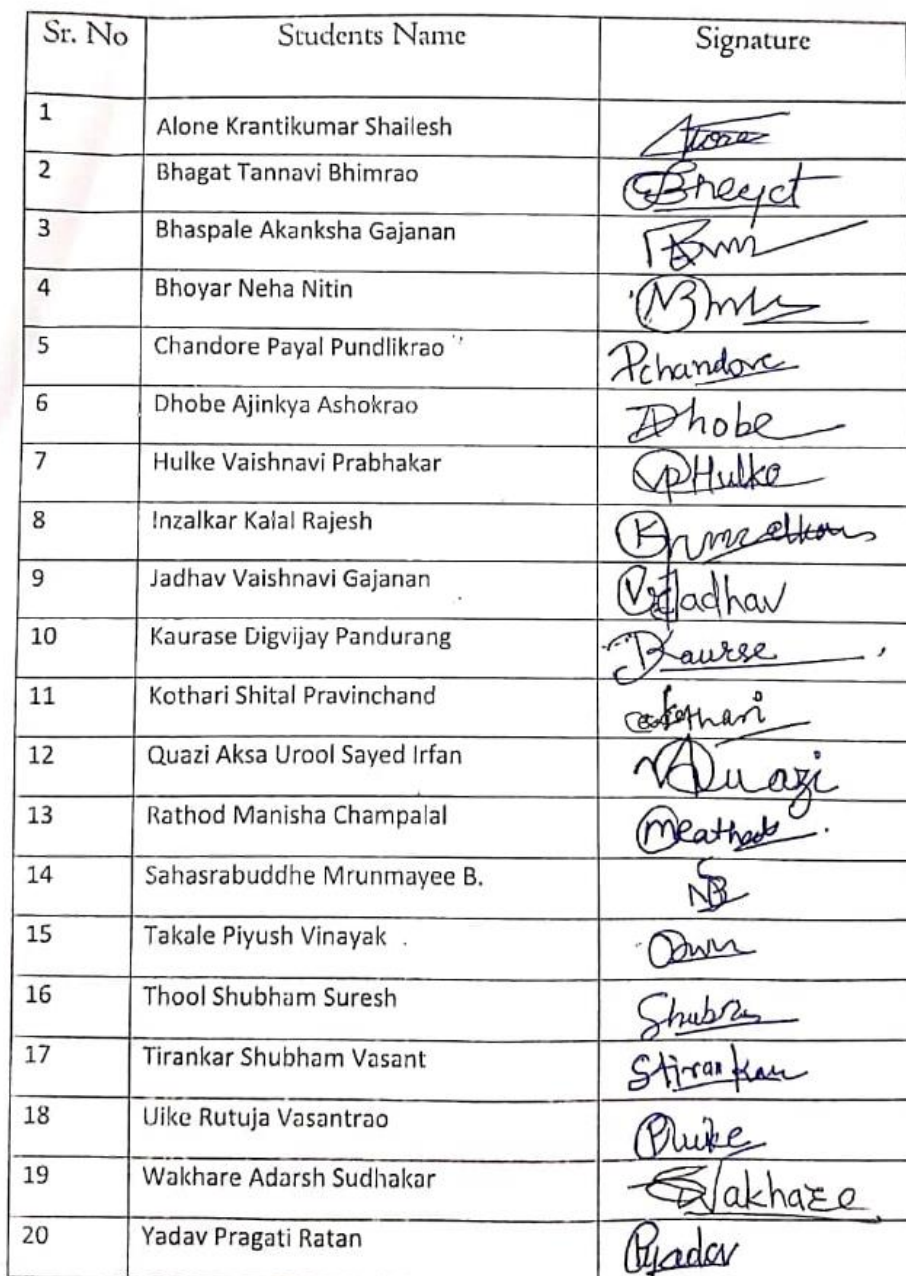 Sr. No Students Name Signature
1 Alone Krantikumar Shailesh
2 Bhagat Tannavi Bhimrao
3 Bhaspale Akanksha Gajanan
4 Bhoyar Neha Nitin
5 Chandore Payal Pundlikrao Pchandore
6 Dhobe Ajinkya Ashokrao Dhobe
7 Hulke Vaishnavi Prabhakar VPHulke
8 Inzalkar Kalal Rajesh
9 Jadhav Vaishnavi Gajanan VGJadhav
10 Kaurase Digvijay Pandurang DKaurse
11 Kothari Shital Pravinchand
12 Quazi Aksa Urool Sayed Irfan AQuazi
13 Rathod Manisha Champalal
14 Sahasrabuddhe Mrunmayee B.
15 Takale Piyush Vinayak
16 Thool Shubham Suresh
17 Tirankar Shubham Vasant Stirankar
18 Uike Rutuja Vasantrao RUike
19 Wakhare Adarsh Sudhakar Wakhare
20 Yadav Pragati Ratan Pyadav